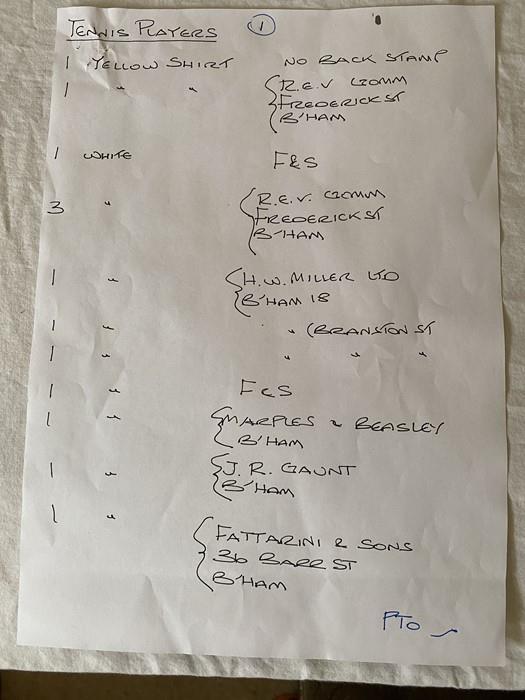 TENNIS PLAYERS 1
1 YELLOW SHIRT NO BACK STAMP
1 " " { R.E.V GOMM
FREDERICK ST
B'HAM
1 WHITE F&S
3 " { R.E.V. GOMM
FREDERICK ST
B'HAM
1 " { H.W. MILLER LTD
B'HAM 18
1 " " (BRANSTON ST
1 " " " "
1 " F&S
1 " { MARPLES & BEASLEY
B'HAM
1 " { J.R. GAUNT
B'HAM
1 "
{ FATTARINI & SONS
36 BARR ST
B'HAM
PTO